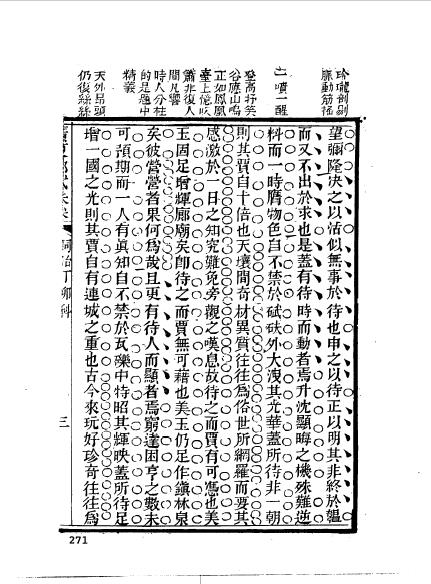 玲瓏剔剔
脈動筋搖
一噴一醒
發高抒笑
谷應山鳴
正如鳳凰
臺上憶吹
簫非復人
間凡響
時人分柱
的是題中
精義
天外昂頭
仍復絲絲
望彌隆決之以沽似無事於待也申之以待正以明其非終於韞
而又不出於求也是蓋有待時而動者焉升沈顯晦之機殊難逆
料而一時賸物色自不禁於碔砆外大洩其光華蓋所待非一朝
則其賈自十倍也天壤間奇材異質往往爲俗世所網羅而要其
感激於一日之知究難免旁觀之嘆息故待之而賈有可憑也美
玉固足增輝廊廟矣卽待之而賈無可藉也美玉仍足作鎭林泉
矣彼營營者果何爲哉且更有待人而顯者焉窮達困亨之數未
可預期而一人有眞知自不禁於瓦礫中特昭其輝映蓋所待足
增一國之光則其賈自有連城之重也古今來玩好珍奇往往爲
同治丁卯科
三
271